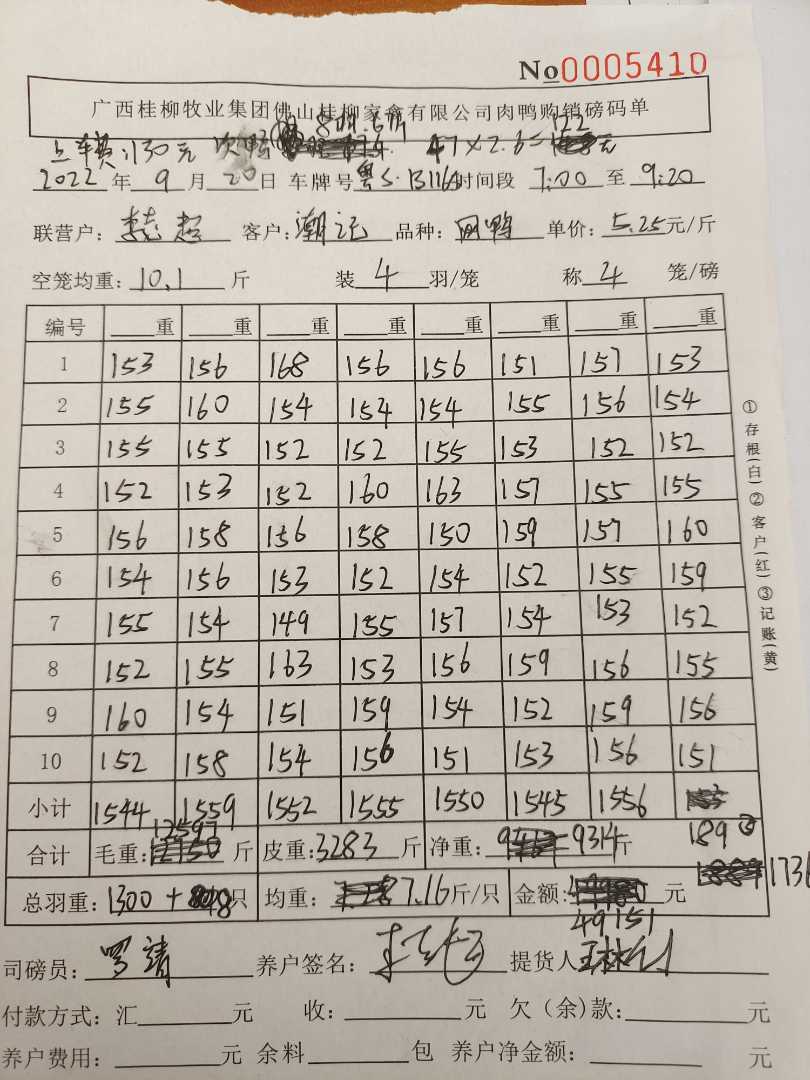 No0005410
广西桂柳牧业集团佛山桂柳家禽有限公司肉鸭购销磅码单
上车费:130元 次鸭 47×2.6= 122 元
2022年9月20日 车牌号粤S·B116A时间段 7:00 至 9:20
联营户: 李志超 客户: 潮记 品种: 网鸭 单价: 5.25元/斤
空笼均重: 10.1 斤 装 4 羽/笼 称 4 笼/磅
编号 重 重 重 重 重 重 重 重
1 153 156 168 156 156 151 157 153
2 155 160 154 154 154 155 156 154
3 155 155 152 152 155 153 152 152
4 152 153 152 160 163 157 155 155
5 156 158 156 158 150 159 157 160
6 154 156 153 152 154 152 155 159
7 155 154 149 155 157 154 153 152
8 152 155 163 153 156 159 156 155
9 160 154 151 159 154 152 159 156
10 152 158 154 156 151 153 156 151
小计 1544 1559 1552 1555 1550 1545 1556
合计 毛重: 12597 斤 皮重: 3283 斤 净重: 9314斤 189
总羽重: 1300 + 8只 均重: 7.16斤/只 金额: 49151 元 1736
司磅员: 罗靖 养户签名: 提货人
付款方式: 汇 元 收: 元 欠(余)款: 元
养户费用: 元 余料 包 养户净金额: 元
①存根(白)②客户(红)③记账(黄)